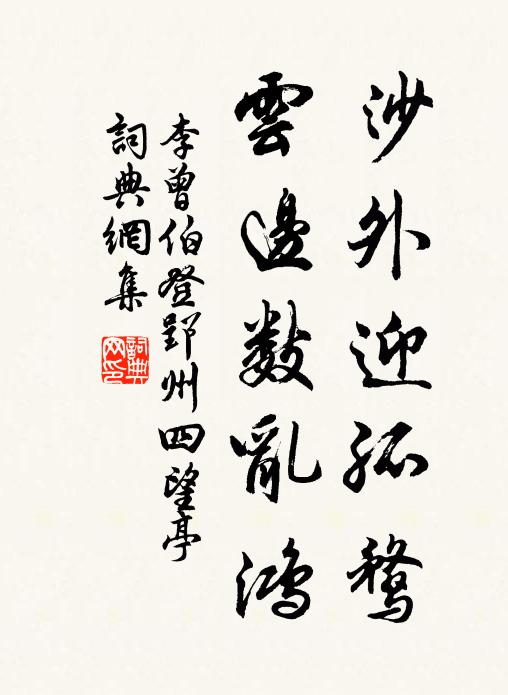 沙外迎孤鶩
雲邊數亂鴻
李曾伯登郢州四望亭
詞典網集
詞典網印